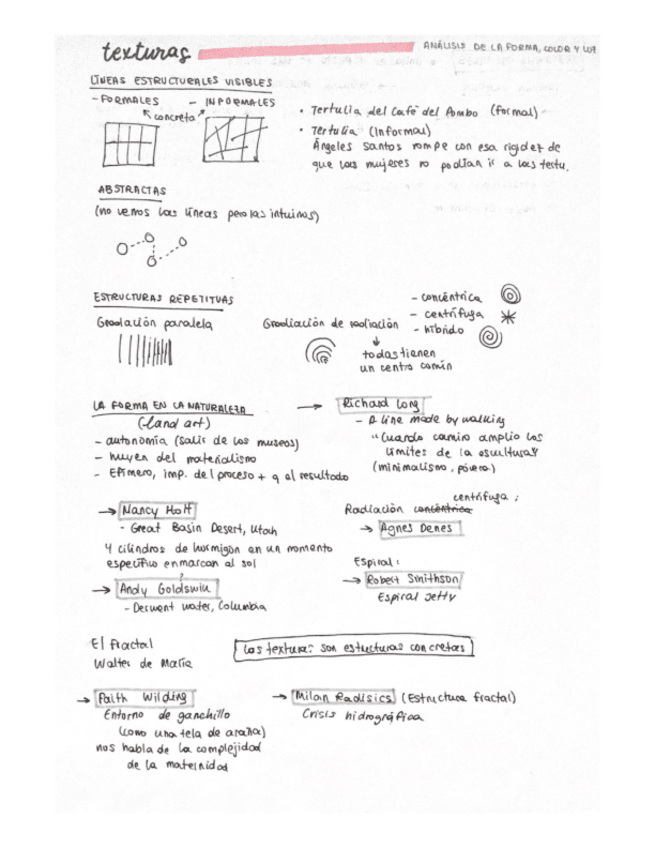 texturas
ANÁLISIS DE LA FORMA, COLOR Y LUZ
LÍNEAS ESTRUCTURALES VISIBLES
- FORMALES - INFORMALES
concreta
• Tertulia del Café del Pombo (formal)
• Tertulia (Informal)
Ángeles Santos rompe con esa rigidez de
que las mujeres no podían ir a las tertu.
ABSTRACTAS
(no vemos las líneas pero las intuimos)
ESTRUCTURAS REPETITIVAS
Gradación paralela
Gradiación de radiación
- concéntrica
- centrífuga
- híbrido
todas tienen
un centro común
LA FORMA EN LA NATURALEZA
(land art)
- autonomía (salir de los museos)
- huyen del materialismo
- Efímero, imp. del proceso + q al resultado
→ Richard Long
- A line made by walking
"Cuando camino amplio los
límites de la escultura"
(minimalismo, póvera)
→ Nancy Holt
- Great Basin Desert, Utah
4 cilindros de hormigón en un momento
específico enmarcan al sol
?
→ Andy Goldswin
- Derwent water, Columbia
centrífuga:
Radiación concéntrica
→ Agnes Denes
Espiral:
→ Robert Smithson
Espiral Jetty
El fractal
Walter de María
Las texturas son estructuras concretas
→ Faith Wilding
Entorno de ganchillo
(como una tela de araña)
nos habla de la complejidad
de la maternidad
→ Milan Radisics (Estructura fractal)
Crisis hidrográfica